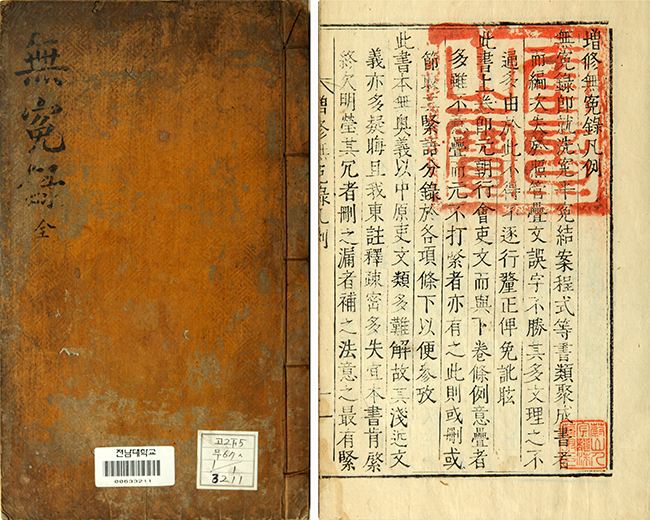 無冤錄
全
전남대학교
00633211
3211
增修無冤錄凡例
無冤錄卽就洗冤平冤結案程式等書類聚成書者
而編次失於照管疊文誤字不勝其多文理之不
通多由於此不得不逐行釐正俾免訛眩
此書上卷卽元朝行會吏文而與下卷條例意疊者
多雖不意疊而元不打緊者亦有之此則或刪或
節取其緊語分錄於各項條下以便參攷
此書本無奧義以中原吏文類多難解故其淺近文
義亦多疑晦且我東註釋疎密多失宜本書肯綮
終欠明瑩其冗者刪之漏者補之法意之最有緊
增修無冤錄凡例